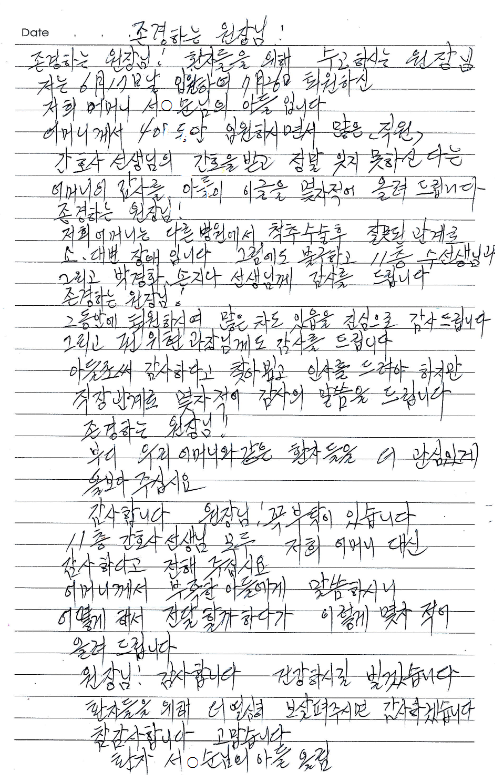 존경하는 원장님!
Date . . .
존경하는 원장님! 환자들을 위해 수고하시는 원장님
저는 6月17日날 입원하여 7月26日 퇴원하신
저희 어머니 서○순님의 아들 입니다
어머니께서 40日동안 입원하시면서 많은 직원,
간호사 선생님의 간호을 받고 정말 잊지 못하신 다는
어머니의 감사를, 아들의 이글을 몇자적어 올려 드립니다
존경하는 원장님!
저희어머니는 다른병원에서 척추수술후 잘못된 관계로
소.대변 장애 입니다 그럼에도 불구하고 11층 수선생님과
그리고 박경화, 손지나 선생님께 감사를 드립니다
존경하는 원장님!
그동안에 퇴원하시며 많은 차도 있음을 진심으로 감사드립니다
그리고 편 위현 과장님께도 감사를 드립니다
아들로써 감사하다고 찾아뵙고 인사를 드려야 하지만
직장관계로 몇자적어 감사의 말씀을 드립니다
존경하는 원장님!!
부디 우리 어머니와 같은 환자들을 더 관심있게
돌보아 주십시요
감사합니다 원장님! 꼭 부탁이 있습니다
11층 간호사선생님 모두 저희 어머니 대신
감사하다고 전해 주십시요
어머니께서 부족한 아들에게 말씀하시니
어떻게 해서 전달 할까하다가 이렇게 몇자 적어
올려 드립니다
원장님! 감사합니다 건강하시길 빌겠습니다
환자들을 위해 더 열심히 보살펴주시면 감사하겠습니다
참감사합니다 고맙습니다
환자 서○순님의 아들 올림